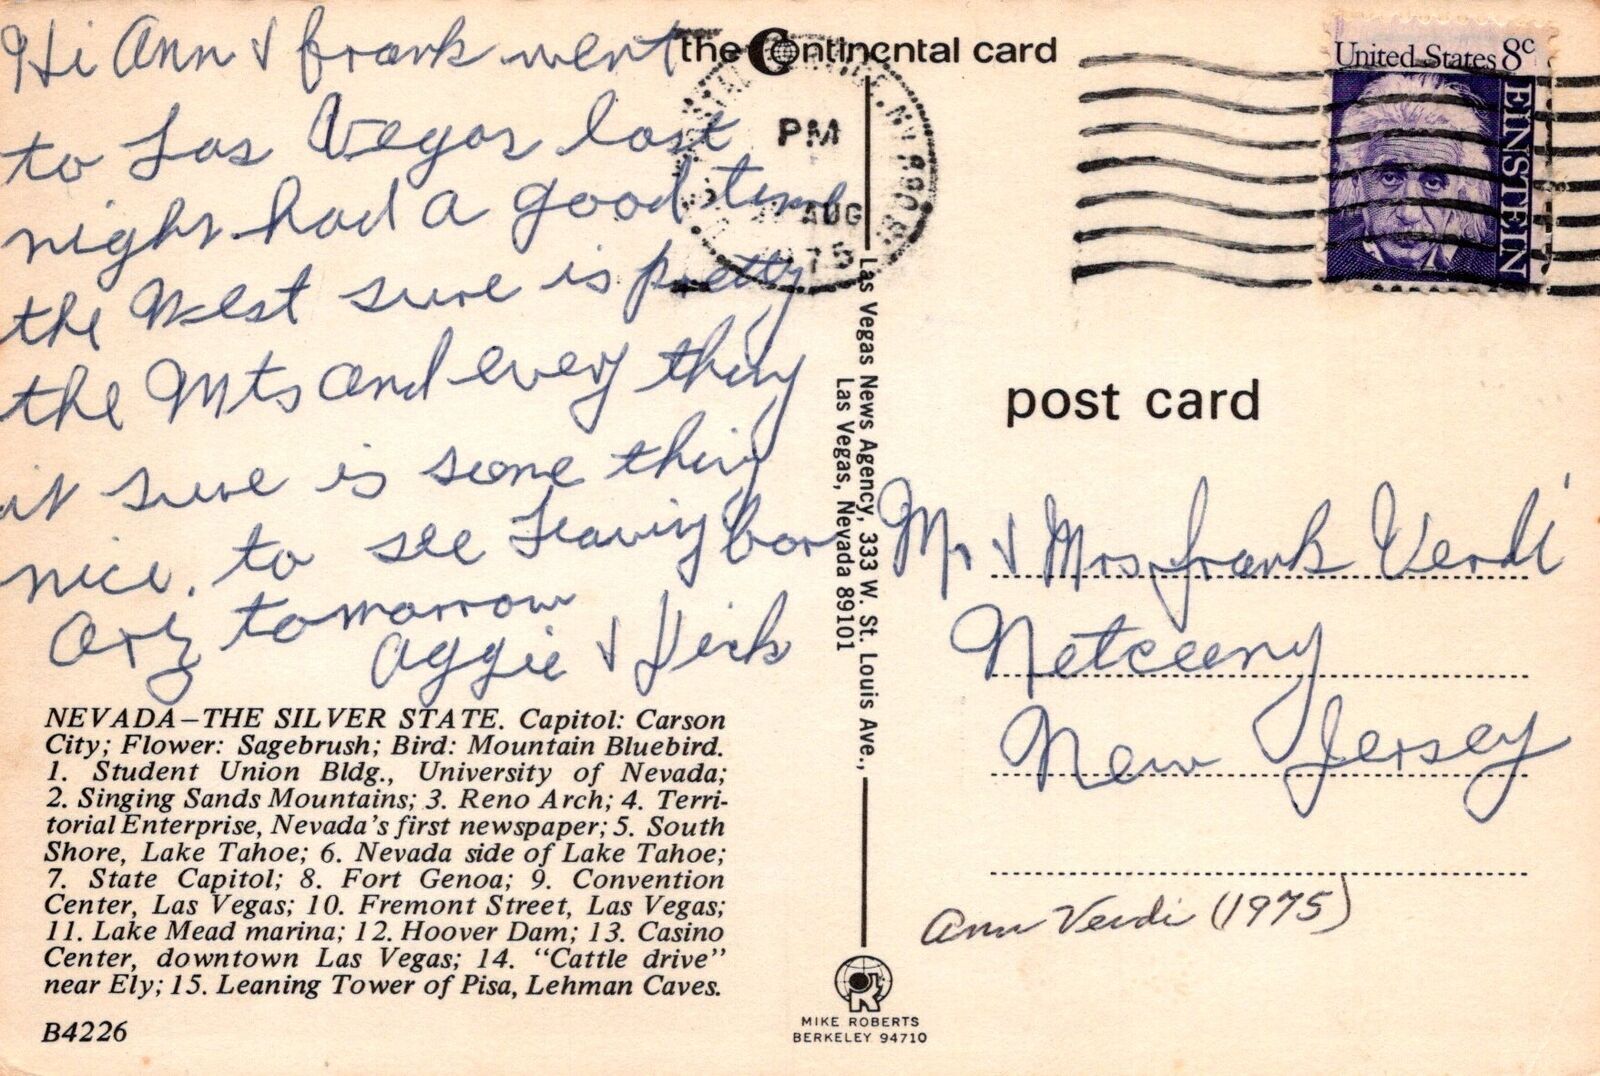 Hi Ann & Frank went
to Las Vegas last
night had a good time
the West sure is pretty
the Mts and every thing
it sure is some thing
nice. to see Leaving for
Ariz tomorrow
Aggie & Dick
NEVADA—THE SILVER STATE. Capitol: Carson
City; Flower: Sagebrush; Bird: Mountain Bluebird.
1. Student Union Bldg., University of Nevada;
2. Singing Sands Mountains; 3. Reno Arch; 4. Terri-
torial Enterprise, Nevada's first newspaper; 5. South
Shore, Lake Tahoe; 6. Nevada side of Lake Tahoe;
7. State Capitol; 8. Fort Genoa; 9. Convention
Center, Las Vegas; 10. Fremont Street, Las Vegas;
11. Lake Mead marina; 12. Hoover Dam; 13. Casino
Center, downtown Las Vegas; 14. "Cattle drive"
near Ely; 15. Leaning Tower of Pisa, Lehman Caves.
B4226
the Continental card
PM
AUG
75
Las Vegas News Agency, 333 W. St. Louis Ave.,
Las Vegas, Nevada 89101
MIKE ROBERTS
BERKELEY 94710
United States 8c
EINSTEIN
post card
Mr & Mrs. Frank Verdi
Netceeny
New Jersey
Ann Verdi (1975)